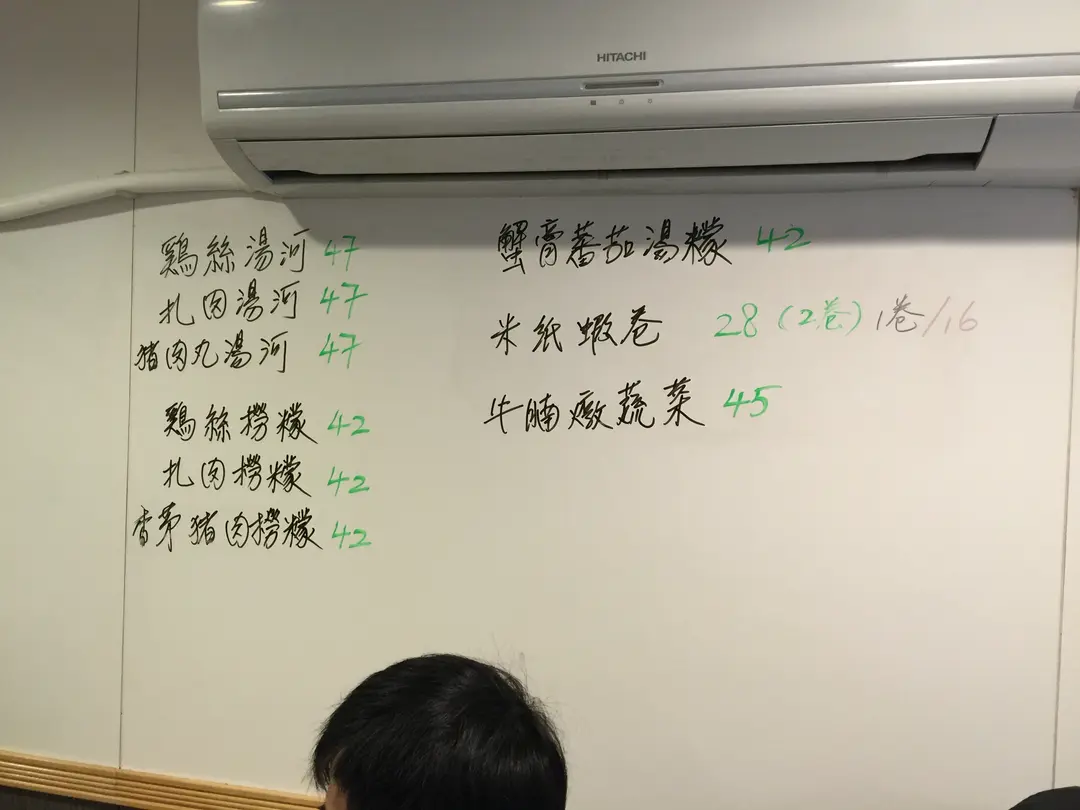 HITACHI
鷄絲湯河 47
扎肉湯河 47
猪肉丸湯河 47
鷄絲撈檬 42
扎肉撈檬 42
香茅猪肉撈檬 42
蟹膏蕃茄湯檬 42
米紙蝦卷 28 (2卷) 1卷/16
牛腩燉蔬菜 45